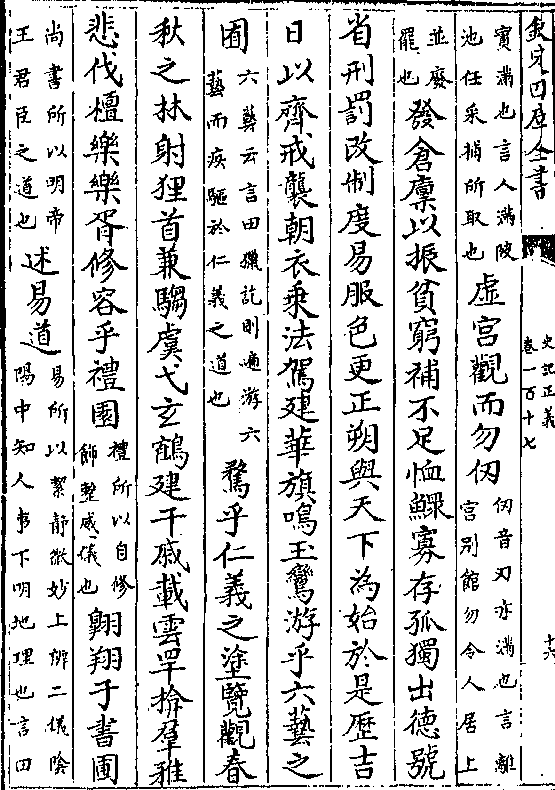 欽定四庫全書
史記正義
卷一百十七
十六
實滿也言人滿陂
池任采捕所取也
虛宮觀而勿仞
仞音刃亦滿也言離
宮別館勿令人居上
並廢
罷也
發倉廩以振貧窮補不足恤鰥寡存孤獨出德號
省刑罰改制度易服色更正朔與天下為始於是歷吉
日以齊戒襲朝衣乗法駕建華旗鳴玉鸞游乎六藝之
囿
六藝云言田獵訖則遍游六
藝而疾驅於仁義之道也
騖乎仁義之塗覽觀春
秋之林射狸首兼騶虞弋玄鶴建干戚載雲䍐揜羣雅
悲伐檀樂樂胥修容乎禮園
禮所以自修
飾整威儀也
翺翔于書圃
尚書所以明帝
王君臣之道也
述易道
易所以絜靜微妙上辨二儀陰
陽中知人事下明地理也言田